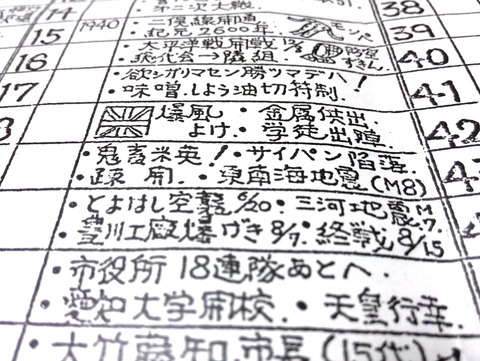 14 第二次大戦 38
15 1940 ・二俣線開通 モンペ 39
・紀元2600年
16 ・太平洋戦開戦 12/8 防空ずきん 40
・総代会→隣組.
17 ・欲シガリマセン勝ツマデハ! 41
・味噌.しょう油切符制.
爆風 ・金属供出. 42
よけ.・学徒出陣
・鬼畜米英!・サイパン陥落.
・疎開.・東南海地震(M8)
・とよはし空襲6/20・三河地震M7.
・豊川工廠爆げき8/7.・終戦8/15
・市役所18連隊あとへ.
・愛知大学開校.・天皇行幸.
・大竹藤知.市長(15代)